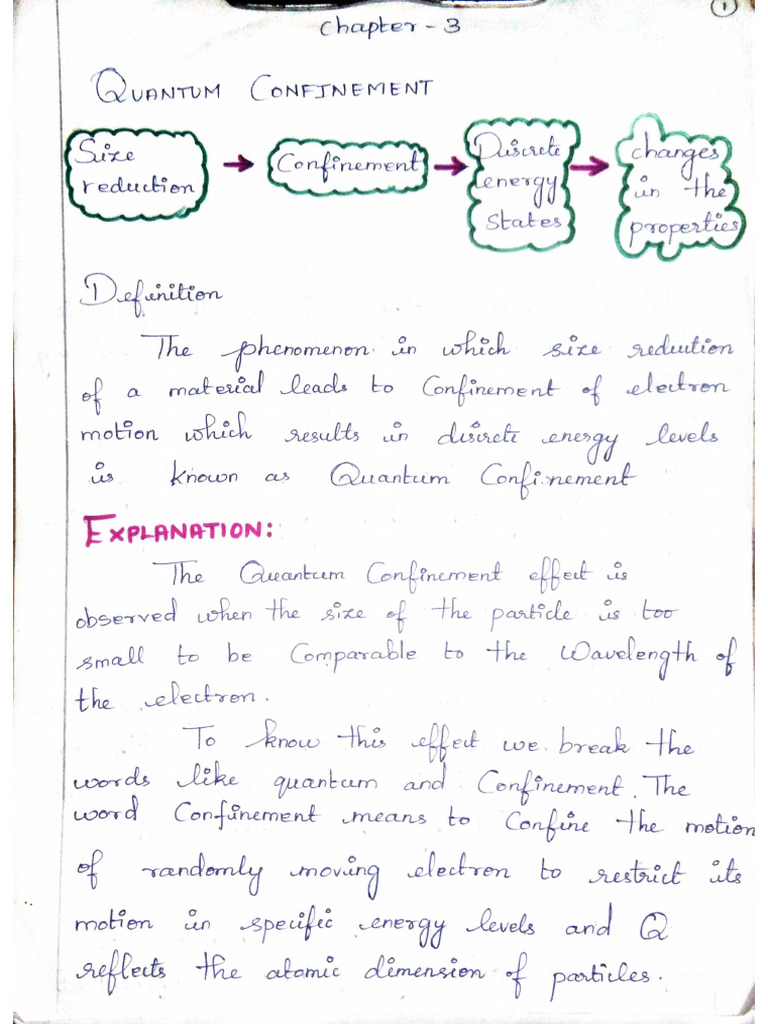 1
Chapter - 3
QUANTUM CONFINEMENT
Size
reduction
Confinement
Discrete
energy
States
changes
in the
properties
Definition
The phenomenon in which size reduction
of a material leads to Confinement of electron
motion which results in discrete energy levels
is known as Quantum Confinement
EXPLANATION:
The Quantum Confinement effect is
observed when the size of the particle is too
small to be Comparable to the Wavelength of
the electron.
To know this effect we break the
words like quantum and Confinement. The
word Confinement means to Confine the motion
of randomly moving electron to restrict its
motion in specific energy levels and Q
reflects the atomic dimension of particles.